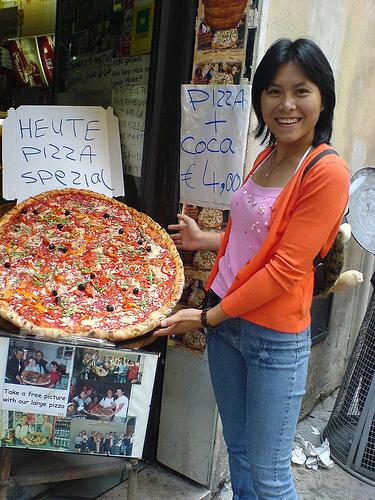 HEUTE
PIZZA
SPEZIAL
PIZZA
+
COCA
€ 4,00
Take a free picture
with our large pizza